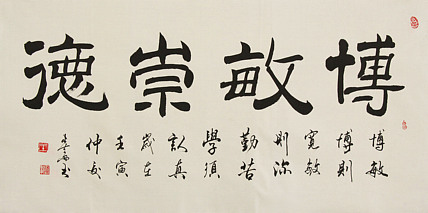 博敏崇德
博敏
博則
寬敏
則深
勤苦
學須
認真
歲在
壬寅
仲友